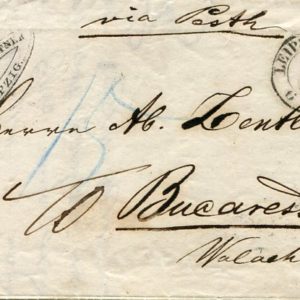 via Pesth
TNER
PZIG.
LEIP
15
Herrn Ab. Zentl
Bucarest
Walach